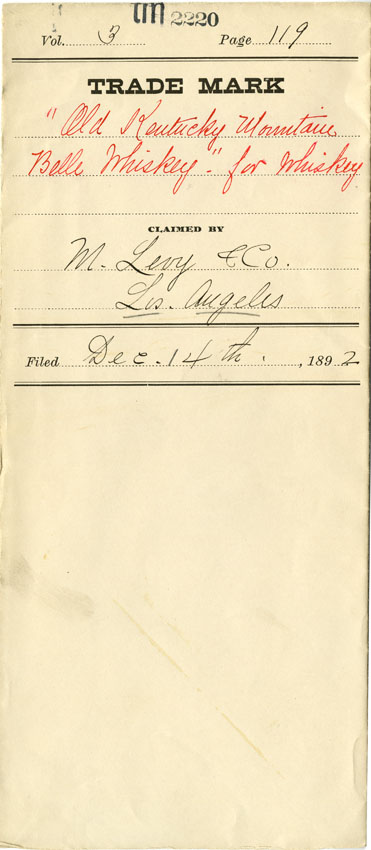 TM 2220
Vol. 3 Page 119
TRADE MARK
"Old Kentucky Mountain
Belle Whiskey." for Whiskey
CLAIMED BY
M. Levy & Co.
Los. Angeles
Filed Dec. 14th. , 1892